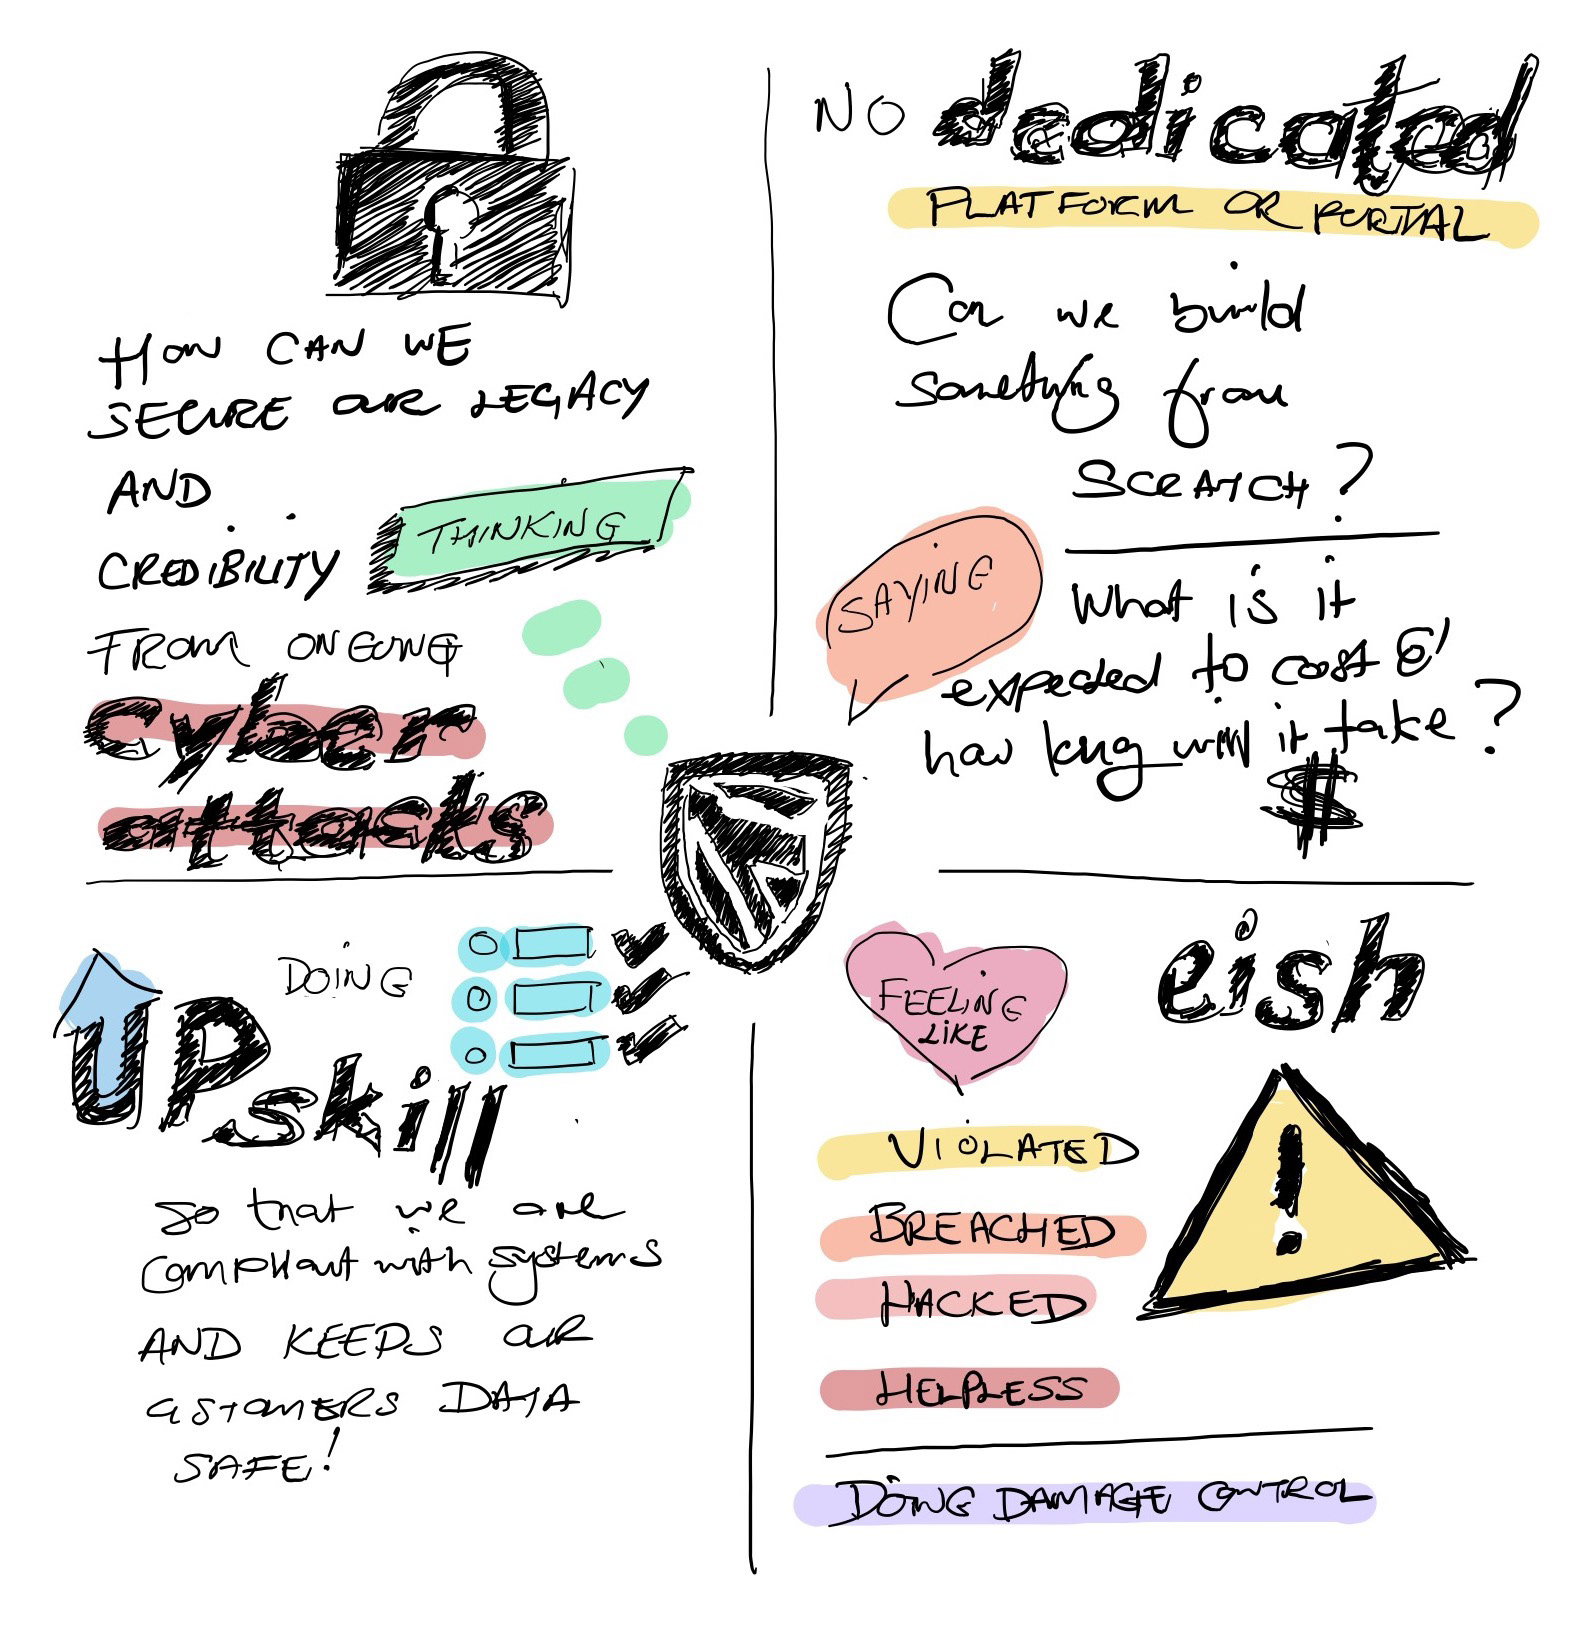 HOW CAN WE
SECURE OUR LEGACY
AND
CREDIBILITY
THINKING
FROM ONGOING
cyber
attacks
NO dedicated
PLATFORM OR PORTAL
Can we build
something from
SCRATCH?
SAYING
What is it
expected to cost &
how long will it take?
$
DOING
UPskill
so that we are
compliant with systems
AND KEEPS OUR
CUSTOMERS DATA
SAFE!
FEELING
LIKE
eish
!
VIOLATED
BREACHED
HACKED
HELPLESS
DOING DAMAGE CONTROL